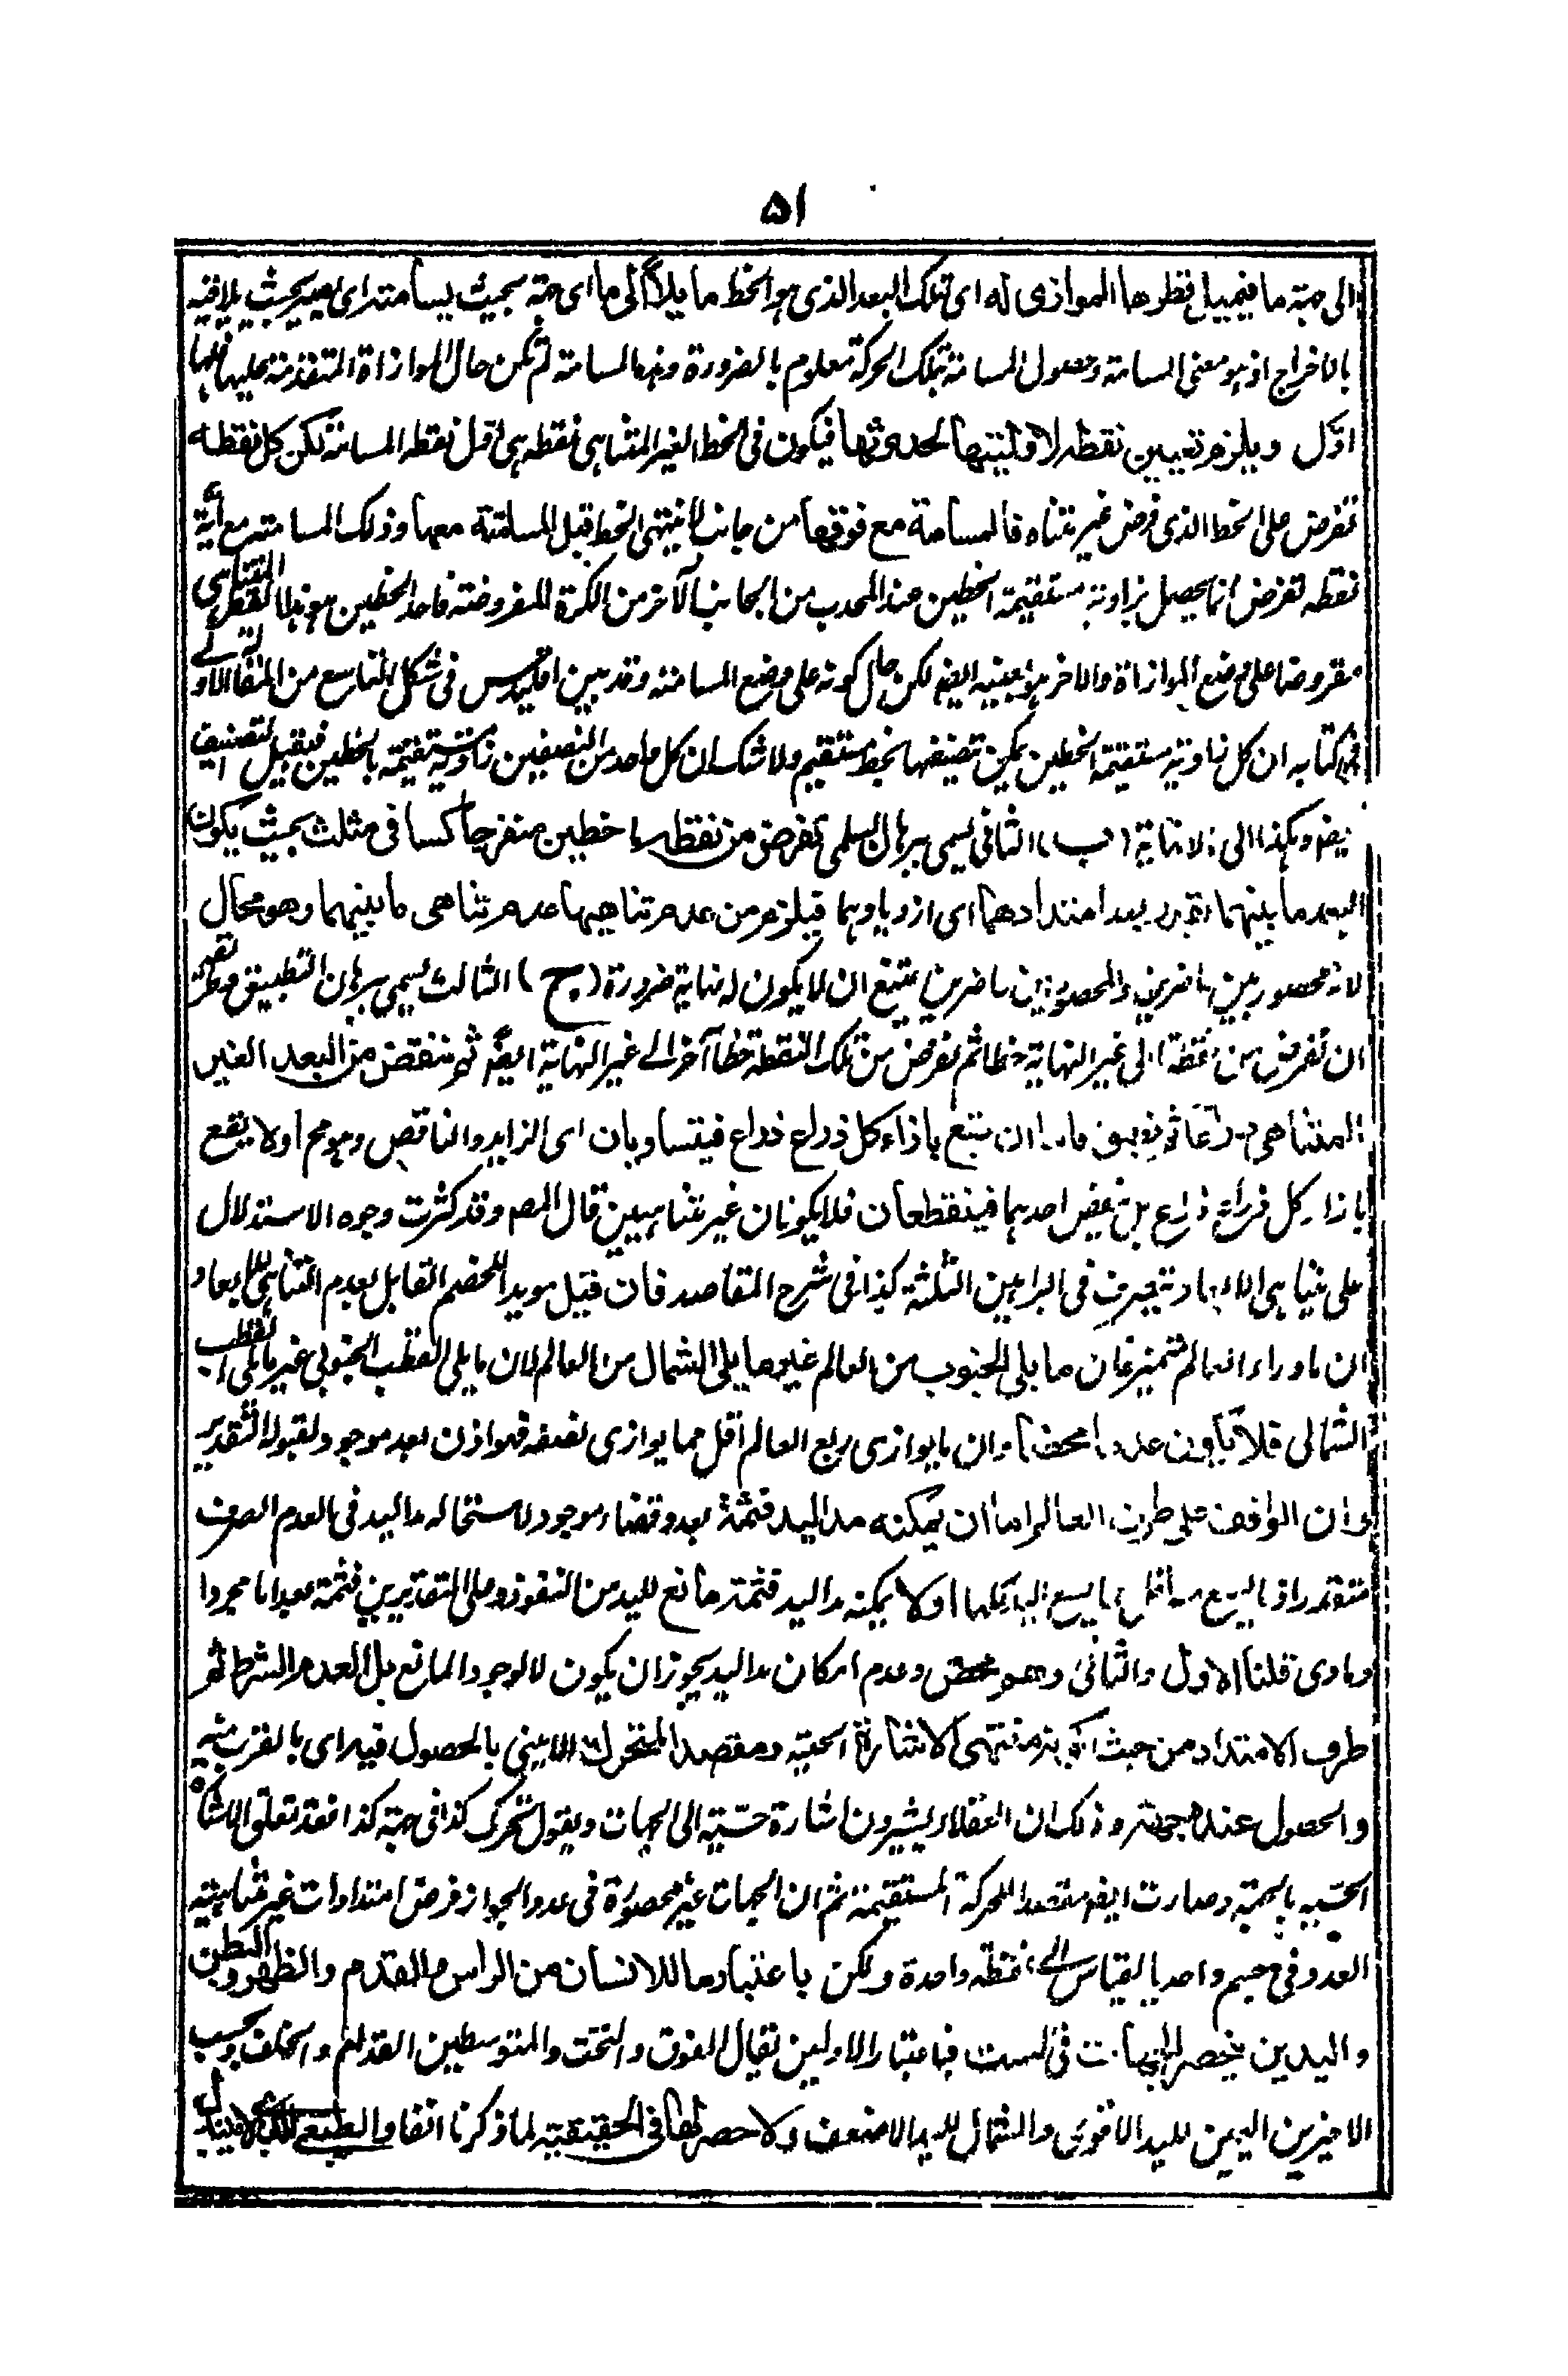 ۵۱
الى جهة ما فيميل قطرها الموازى له اى تلك البعد الذى هو الخط مايلاً الى ما اى جهة بحيث يسامته اى يصير بحيث يلاقيه
بالاخراج اذ هو معنى المسامتة وحصول المسامتة بتلك الحركة معلوم بالضرورة وهذه المسامتة لم تكن حال الموازاة المتقدمة عليها فلها
اوّل ويلزم تعيين نقطة لاوليتها لحدوثها فيكون فى الخط الغير المتناهى نقطة هى اول نقطة المسامتة لكن كل نقطة
تفرض على الخط الذى فرض غير متناه فالمسامتة مع فوقها من جانب لا ينتهى الخط قبل المسامتة معها وذلك المسامتة مع أية
نقطة تفرض انما يحصل بزاوية مستقيمة الخطين عند المحدب من الجانب الآخر من الكرة المفروضة فاحد الخطين هو هذا القطر المتناهى
مفروضا على وضع الموازاة والاخر هو بعينه ايضا لكن حال كونه على وضع المسامتة وقد بين اقليدس فى شكل التاسع من المقالة الاولى
من كتابه ان كل زاوية مستقيمة الخطين يمكن تنصيفها بخط مستقيم ولا شك ان كل واحد من النصفين زاوية مستقيمة بالخطين فيقبل التنصيف
ايضا وهكذا الى لانهاية (ب) الثانى يسمى ببرهان السلمى نفرض من نقطة خطين منفرجا كساقى مثلث بحيث يكون
البعد ما بينهما بقدر بعد امتدادهما اى ازديادهما فيلزم من عدم تناهيها عدم تناهى ما بينهما وهو محال
لانه محصور بين حاضرين والمحصور بين حاضرين يمتنع ان لا يكون له نهاية ضرورة (ج) الثالث يسمى ببرهان التطبيق وتقريره
ان نفرض من نقطة الى غير النهاية خطا ثم نفرض من تلك النقطة خطا آخر الى غير النهاية ايضا ثم ننقض من البعد الغير
المتناهى ذراعا ثم نطبق فاما ان يقع بازاء كل ذراع ذراع فيتساويان اى الزايد والناقص وهو مح اولا يقع
بازاء كل ذراع ذراع بل ينقض احدهما فينقطعان فلا يكونان غير متناهيين قال المصـ وقد كثرت وجوه الاستدلال
على تناهى الابعاد بتصرف فى البراهين الثلثة كذا فى شرح المقاصد فان قيل مويدا للخصم القايل بعدم التناهى للابعاد
ان ماوراء العالم متميز فان ما يلى الجنوب من العالم غير ما يلى الشمال من العالم لان ما يلى القطب الجنوبى غير ما يلى القطب
الشمالى فلا يكون عدما محضا وان ما يوازى ربع العالم اقل مما يوازى نصفه فهو اذن بعد موجود لقبوله التقدير
وان الواقف على طرف العالم اما ان يمكنه مد اليد فثمة بعد وفضاء موجود لاستحاله مد اليد فى العدم الصرف
متقدر اذ ما يسع اقل مما يسع اليد كلها اولا يمكنه مد اليد فثمة مانع لليد من النفوذ وعلى التقديرين فثمة بعد اما مجردا
وماوى قلنا الاول والثانى وهم محض وعدم امكان مد اليد يجوز ان يكون لا لوجود المانع بل لعدم الشرط ثم
طرف الامتداد من حيث كونه منتهى الاشارة الحسيّة ومقصد المتحرك الاينى بالحصول فيه اى بالقرب منه
والحصول عنده جهة وذلك ان العقلاء يشيرون اشارة حسّية الى الجهات ويقول تحرك كذا فى جهة كذا فقد تعلق الاشارة
الحسّيه بالجهة وصارت ايضا مقصدا للحركة المستقيمة ثم ان الجهات غير محصورة فى عدد لجواز فرض امتدادات غير متناهية
العدد فى جسم واحد بالقياس الى نقطة واحدة ولكن باعتبار ما للانسان من الراس والقدم والظهر والبطن
واليدين يخصر الجهات فى الست فباعتبار الاولين يقال الفوق والتحت والمتوسطين القدام والخلف وبحسب
الاخيرين اليمين لليد الاقوى والشمال لليد الاضعف ولا حصر لها فى الحقيقة لما ذكرنا انفا والطبعى الذى لا يتبدل